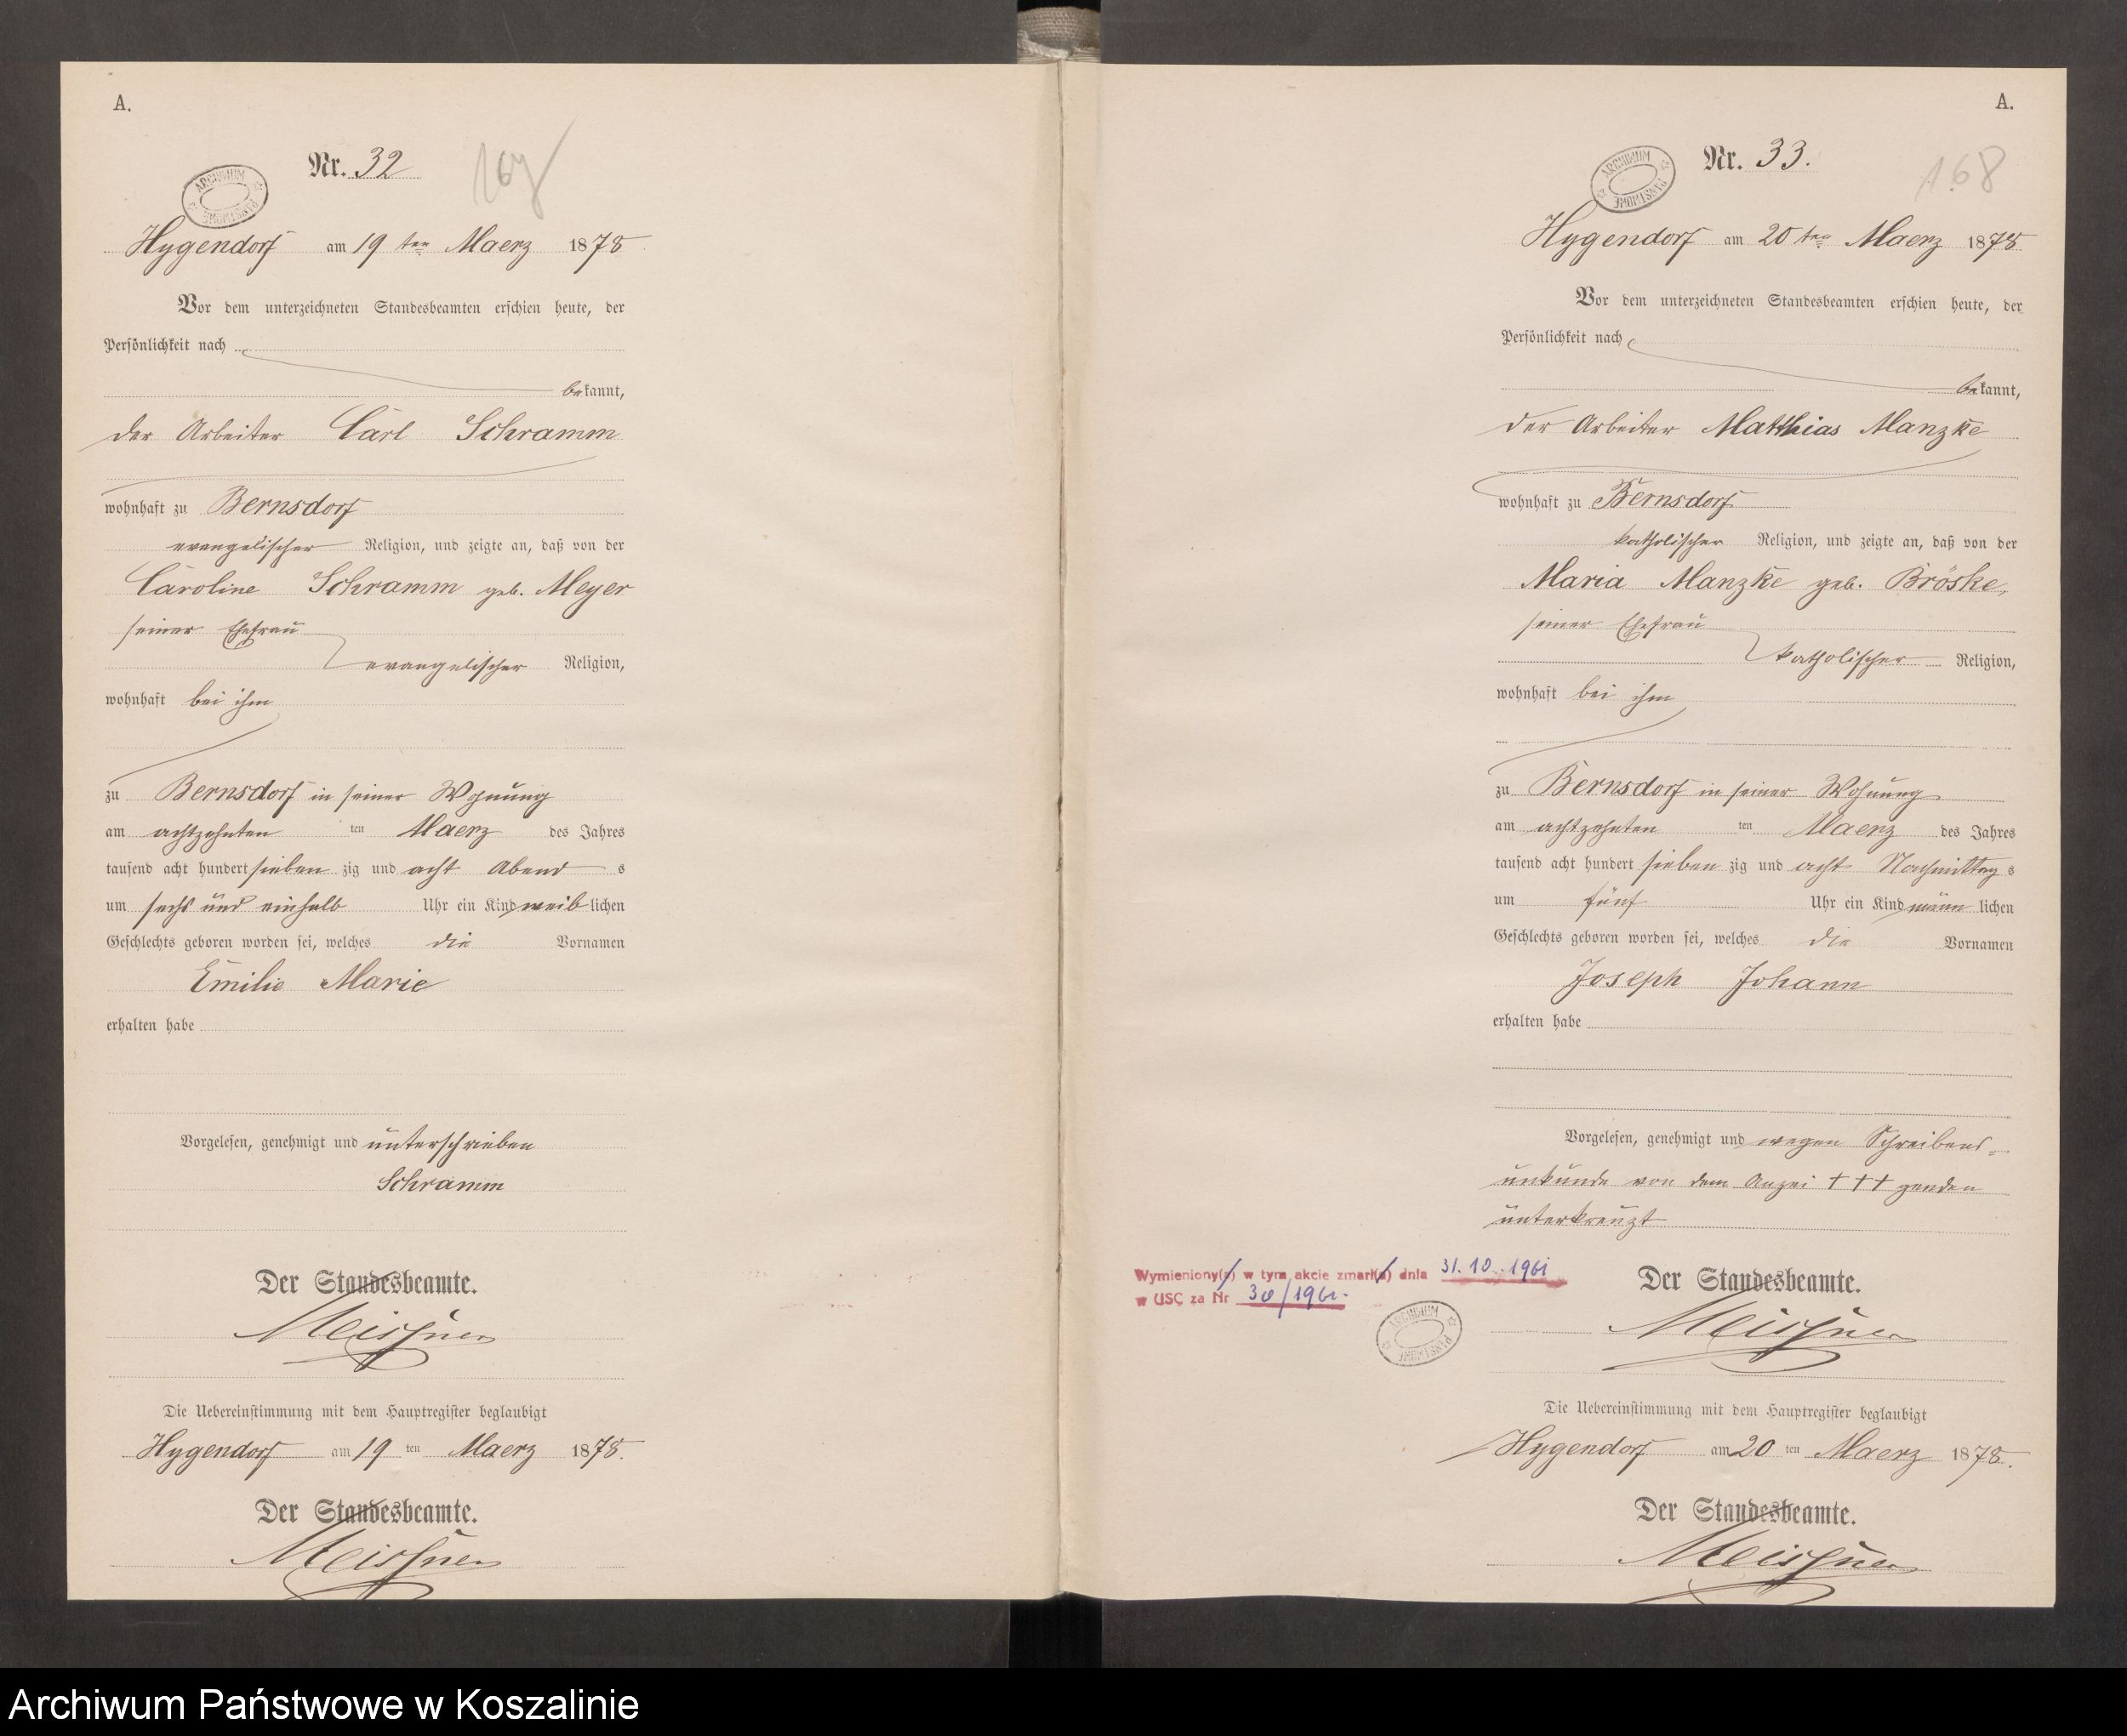 A.
Nr. 32
167
ARCHIWUM PAŃSTWOWE
Hygendorf am 19 ten Maerz 1878
Vor dem unterzeichneten Standesbeamten erschien heute, der
Persönlichkeit nach
bekannt,
der Arbeiter Carl Schramm
wohnhaft zu Bernsdorf
evangelischer Religion, und zeigte an, daß von der
Caroline Schramm geb. Meyer
seiner Ehefrau
evangelischer Religion,
wohnhaft bei ihm
zu Bernsdorf in seiner Wohnung
am achtzehnten ten Maerz des Jahres
tausend acht hundert sieben zig und acht Abend s
um sechs und einhalb Uhr ein Kind weib lichen
Geschlechts geboren worden sei, welches die Vornamen
Emilie Marie
erhalten habe
Vorgelesen, genehmigt und unterschrieben
Schramm
Der Standesbeamte.
Meissner
Die Uebereinstimmung mit dem Hauptregister beglaubigt
Hygendorf am 19 ten Maerz 1878.
Der Standesbeamte.
Meissner
A.
Nr. 33.
168
ARCHIWUM PAŃSTWOWE
Hygendorf am 20 ten Maerz 1878
Vor dem unterzeichneten Standesbeamten erschien heute, der
Persönlichkeit nach
bekannt,
der Arbeiter Matthias Manzke
wohnhaft zu Bernsdorf
katholischer Religion, und zeigte an, daß von der
Maria Manzke geb. Bröske,
seiner Ehefrau
katholischer Religion,
wohnhaft bei ihm
zu Bernsdorf in seiner Wohnung
am achtzehnten ten Maerz des Jahres
tausend acht hundert sieben zig und acht Nachmittag s
um fünf Uhr ein Kind männ lichen
Geschlechts geboren worden sei, welches die Vornamen
Joseph Johann
erhalten habe
Vorgelesen, genehmigt und wegen Schreibens-
unkunde von dem Anzei +++ genden
unterkreuzt
Wymieniony(a) w tym akcie zmarł(a) dnia 31.10.1961
w USC za Nr 30/1961.
ARCHIWUM PAŃSTWOWE
Der Standesbeamte.
Meissner
Die Uebereinstimmung mit dem Hauptregister beglaubigt
Hygendorf am 20 ten Maerz 1878.
Der Standesbeamte.
Meissner
Archiwum Państwowe w Koszalinie